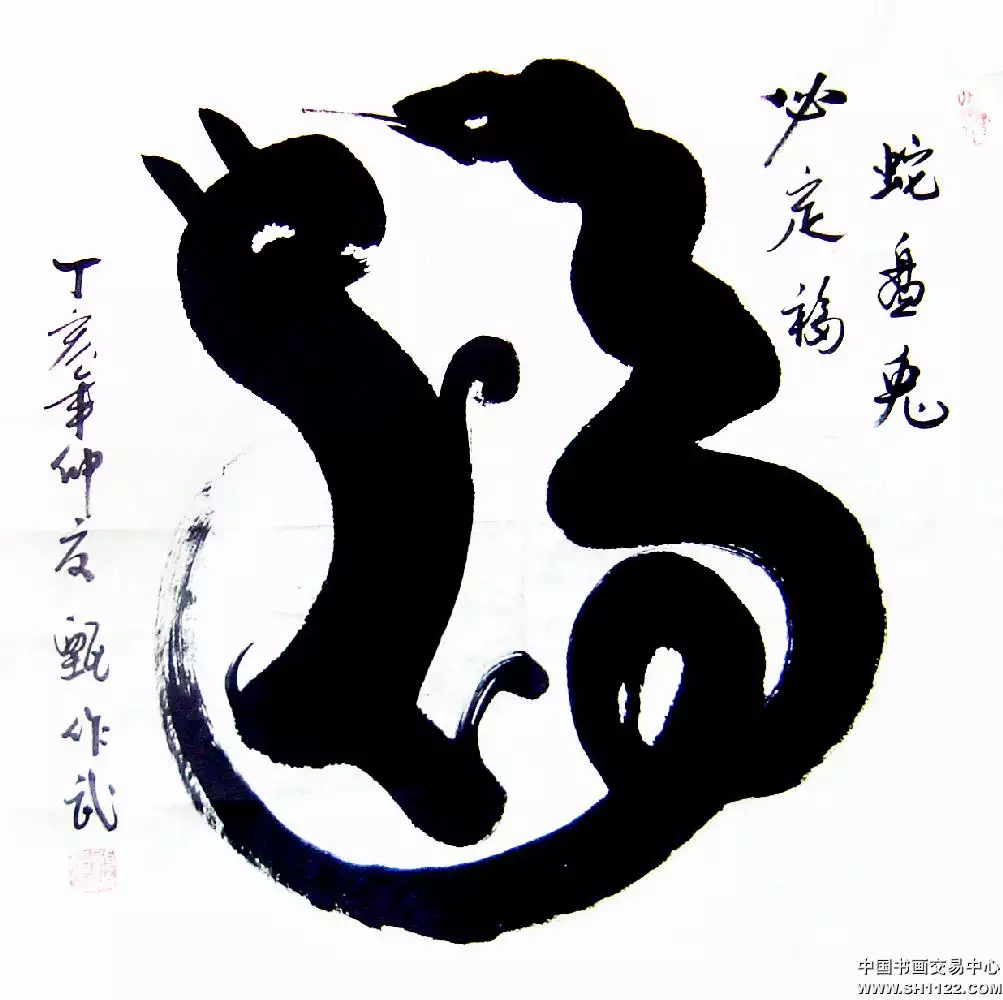 蛇盘兔
必定福
丁亥年仲夏 甄作武
中国书画交易中心
www.SH1122.COM